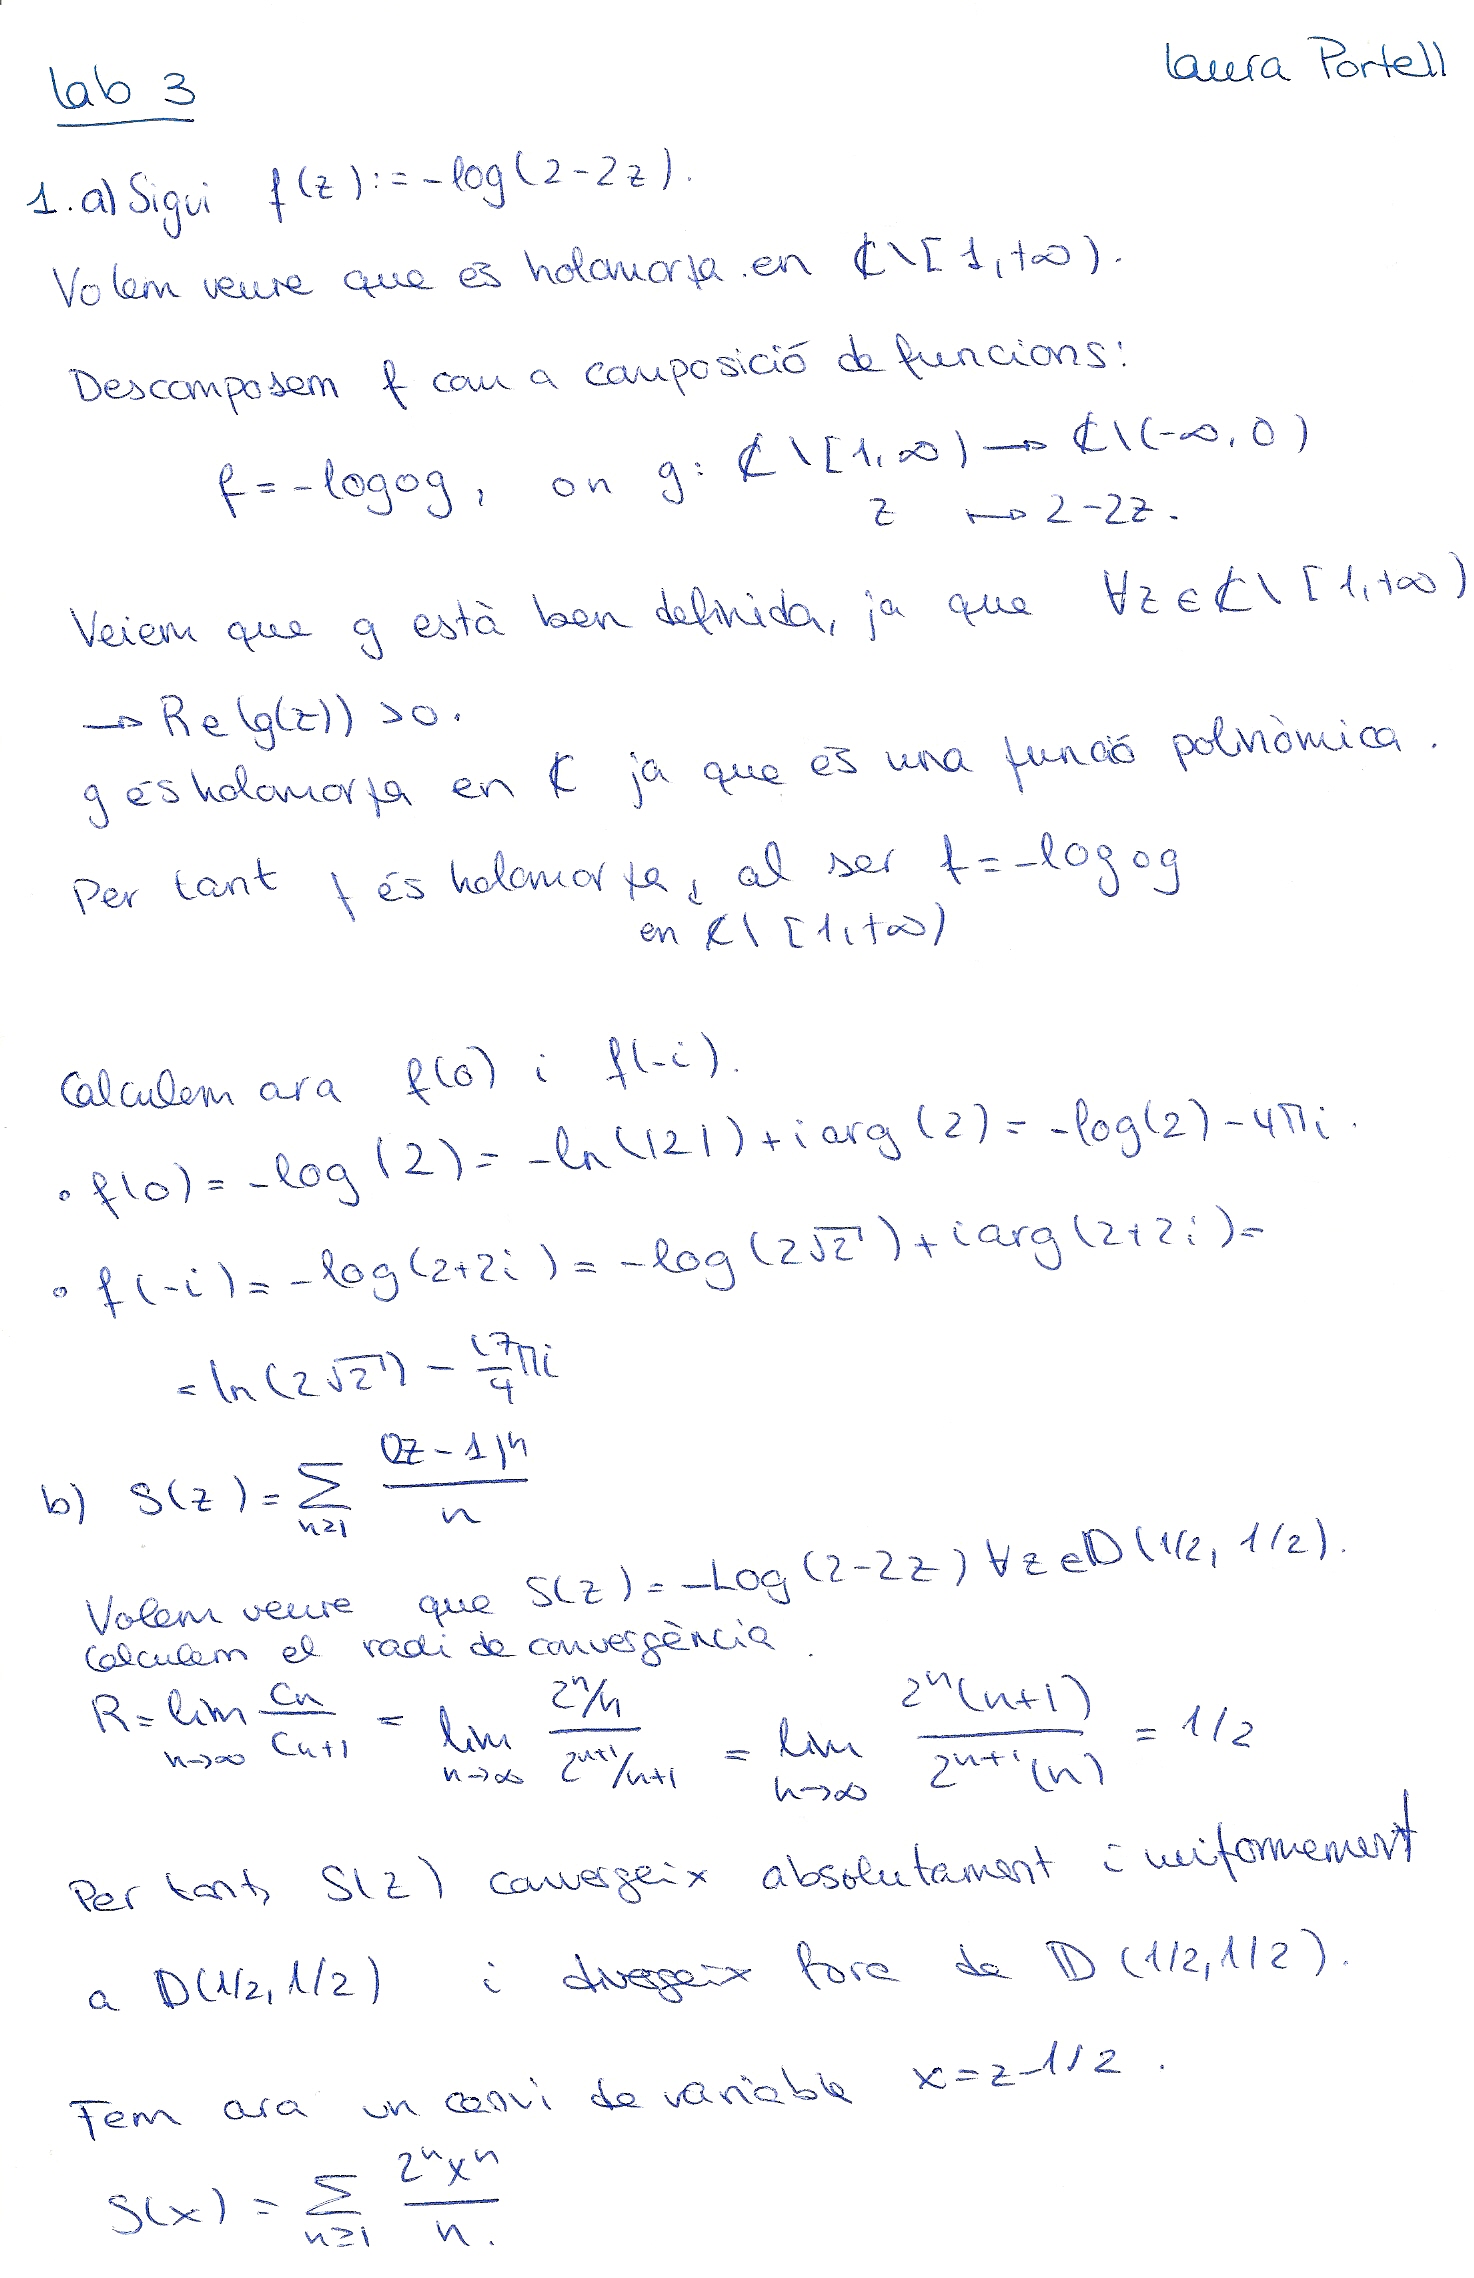 Lab 3
Laura Portell
1. a) Sigui f(z) := -log(2-2z).
Volem veure que és holomorfa en ℂ\[1,+∞).
Descomposem f com a composició de funcions:
f = -log∘g, on g: ℂ\[1,∞) → ℂ\(-∞,0)
z ↦ 2-2z.
Veiem que g està ben definida, ja que ∀z∈ℂ\[1,+∞)
→ Re(g(z)) >0.
g és holomorfa en ℂ ja que és una funció polinòmica.
Per tant f és holomorfa, al ser f = -log∘g
en ℂ\[1,+∞)
Calculem ara f(0) i f(-i).
• f(0) = -log(2) = -ln(|2|) + i arg(2) = -log(2) - 4πi.
• f(-i) = -log(2+2i) = -log(2√2) + i arg(2+2i) =
= ln(2√2) - 17/4 πi
b) S(z) = ∑_{n≥1} (2z-1)^n / n
Volem veure que S(z) = -Log(2-2z) ∀z∈D(1/2, 1/2).
Calculem el radi de convergència.
R = lim_{n→∞} Cn/Cn+1 = lim_{n→∞} (2^n/n)/(2^{n+1}/n+1) = lim_{n→∞} 2^n(n+1)/2^{n+1}(n) = 1/2
Per tant, S(z) convergeix absolutament i uniformement
a D(1/2, 1/2) i divergeix fora de D(1/2, 1/2).
Fem ara un canvi de variable x = z-1/2.
S(x) = ∑_{n≥1} 2^n x^n / n.